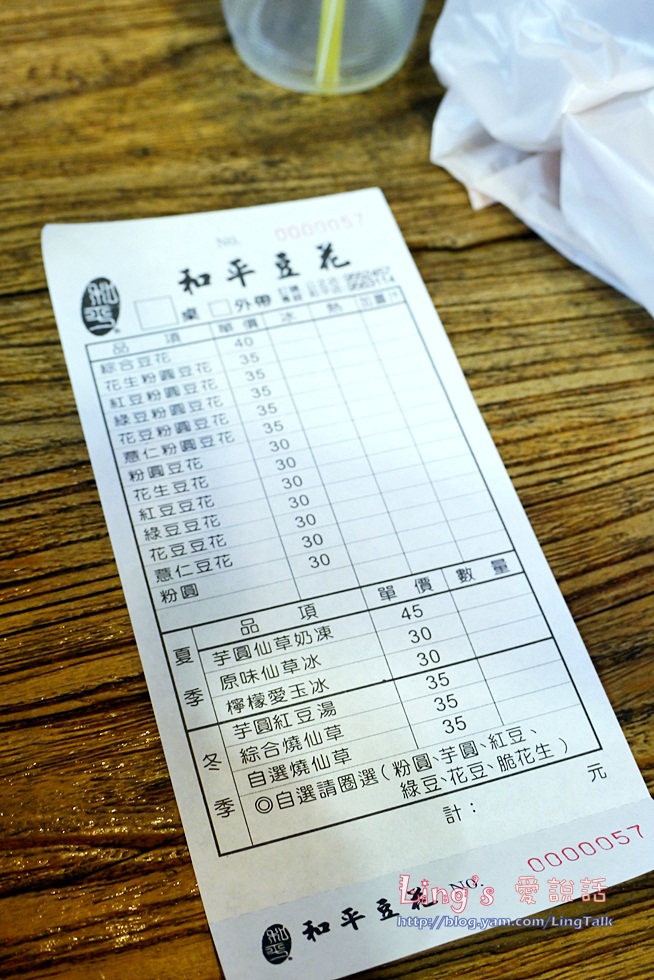 No. 0000057
和平豆花
桌 外帶
品項 單價 冰 熱
綜合豆花 40
花生粉圓豆花 35
紅豆粉圓豆花 35
綠豆粉圓豆花 35
花豆粉圓豆花 35
薏仁粉圓豆花 35
粉圓豆花 30
花生豆花 30
紅豆豆花 30
綠豆豆花 30
花豆豆花 30
薏仁豆花 30
粉圓 30
品項 單價 數量
夏季
芋圓仙草奶凍 45
原味仙草冰 30
檸檬愛玉冰 30
冬季
芋圓紅豆湯 35
綜合燒仙草 35
自選燒仙草 35
◎自選請圈選(粉圓、芋圓、紅豆、
綠豆、花豆、脆花生)
計： 元
NO. 0000057
和平豆花
Ling's 愛說話
http://blog.yam.com/LingTalk